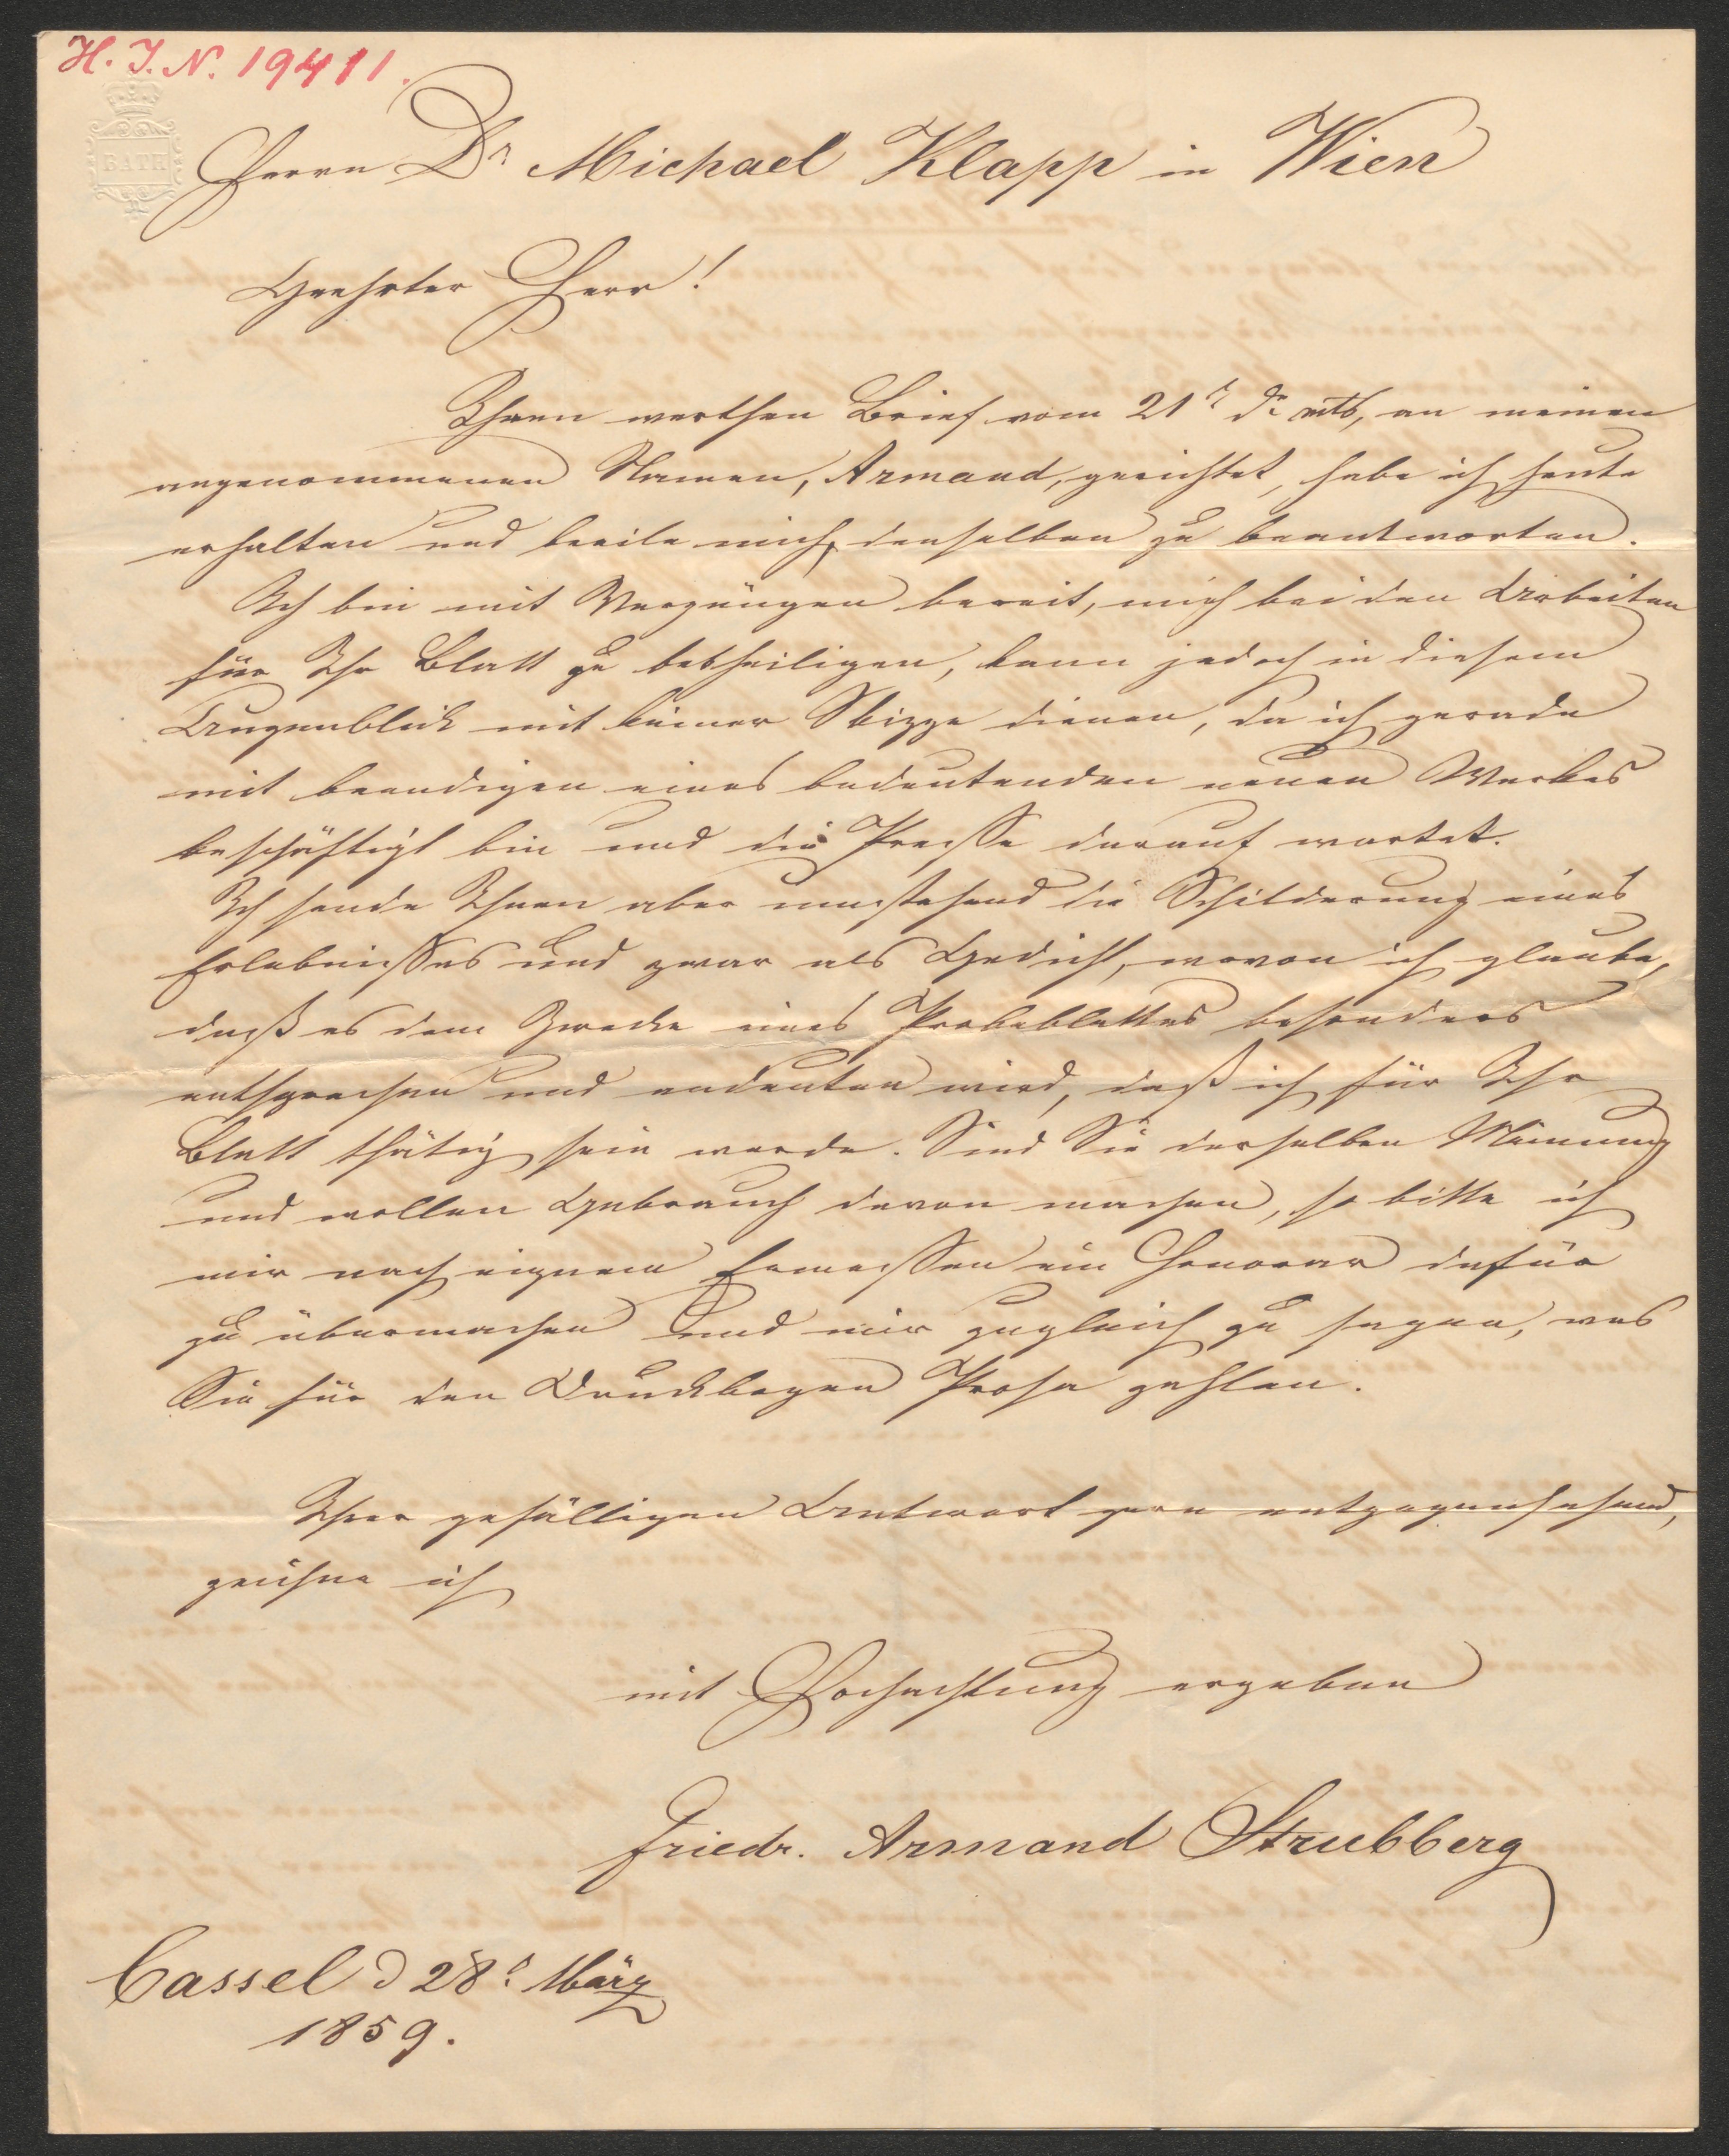 H. I. N. 19411.
BATH
Herrn Dr Michael Klapp in Wien
Geehrter Herr!
Ihren werthen Brief vom 21t ds mts, an meinen
angenommenen Namen, Armand, gerichtet, habe ich heute
erhalten und beeile mich, denselben zu beantworten.
Ich bin mit Vergnügen bereit, mich bei den Arbeiten
für Ihr Blatt zu betheiligen, kann jedoch in diesem
Augenblick mit keiner Skizze dienen, da ich gerade
mit beendigen eines bedeutenden neuen Werkes
beschäftigt bin und die Presse darauf wartet.
Ich sende Ihnen aber umstehend die Schilderung eines
Erlebnisses und zwar als Gedicht, wovon ich glaube,
daß es dem Zwecke eines Probeblattes besonders
entsprechen und andeuten wird, daß ich für Ihr
Blatt thätig sein werde. Sind Sie derselben Meinung
und wollen Gebrauch davon machen, so bitte ich
mir nach eignem Ermessen ein Honorar dafür
zu übermachen und mir zugleich zu sagen, was
Sie für den Druckbogen Prosa zahlen.
Ihrer gefälligen Antwort gern entgegensehend,
zeichne ich
mit Hochachtung ergeben
Friedr. Armand Strubberg
Cassel d 28t März
1859.